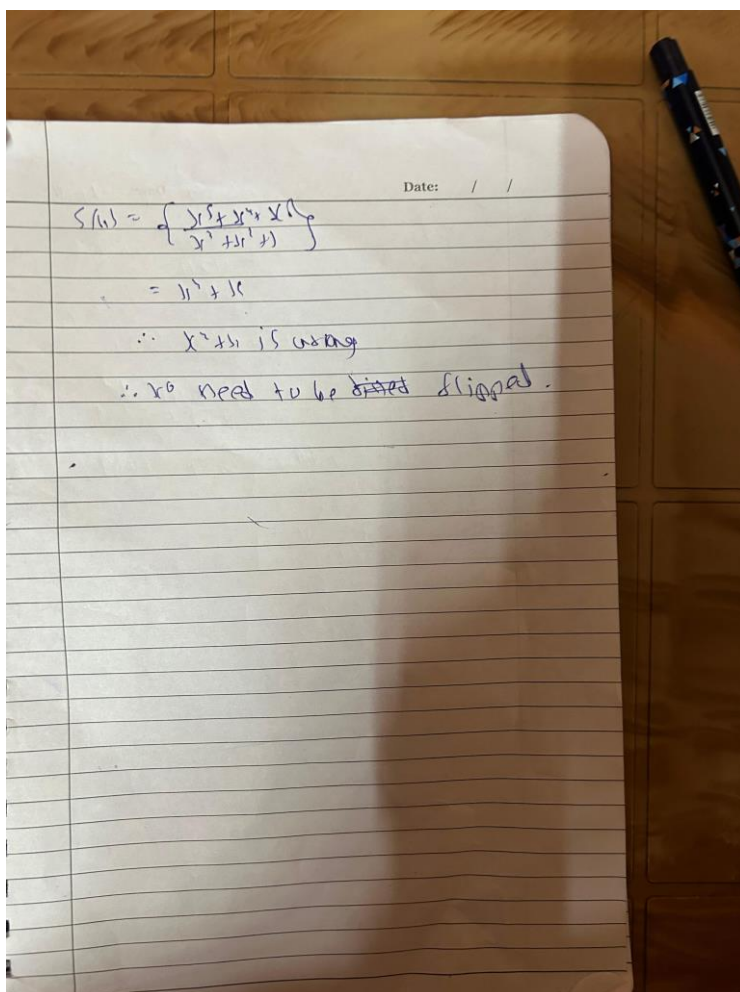 Date: / /
S(x) = { x⁵ + x⁴ + x⁶ / x³ + x¹ + 1 }
= x² + x
∴ x² + x is wrong
∴ x⁶ need to be flipped.